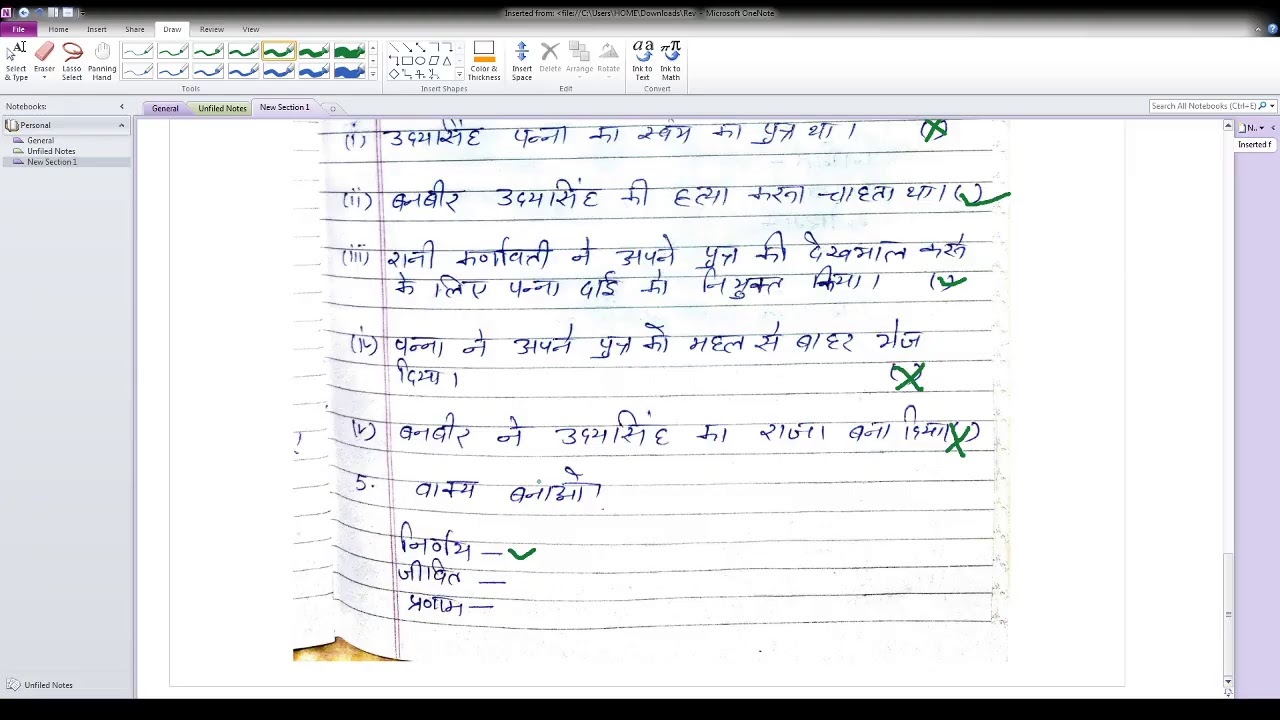 Inserted from: <file://C:\Users\HOME\Downloads\Rev - Microsoft OneNote
File Home Insert Share Draw Review View
Select & Type
Eraser
Lasso Select
Panning Hand
Color & Thickness
Insert Space
Delete
Arrange
Rotate
Ink to Text
Ink to Math
Tools
Insert Shapes
Edit
Convert
Notebooks:
General Unfiled Notes New Section 1
Search All Notebooks (Ctrl+E)
Personal
General
Unfiled Notes
New Section 1
N..
Inserted f
(i) उदयसिंह पन्ना का स्वंय का पुत्र था। (X)
(ii) बनबीर उदयसिंह की हत्या करना चाहता था। (✓)
(iii) रानी कर्णावती ने अपने पुत्र की देखभाल करने
के लिए पन्ना दाई को नियुक्त किया। (✓)
(iv) पन्ना ने अपने पुत्र को महल से बाहर भेज
दिया। (X)
(v) बनबीर ने उदयसिंह का राजा बना दिया (X)
5. वाक्य बनाओ।
निर्णय — ✓
जीवित —
प्रणाम —
Unfiled Notes